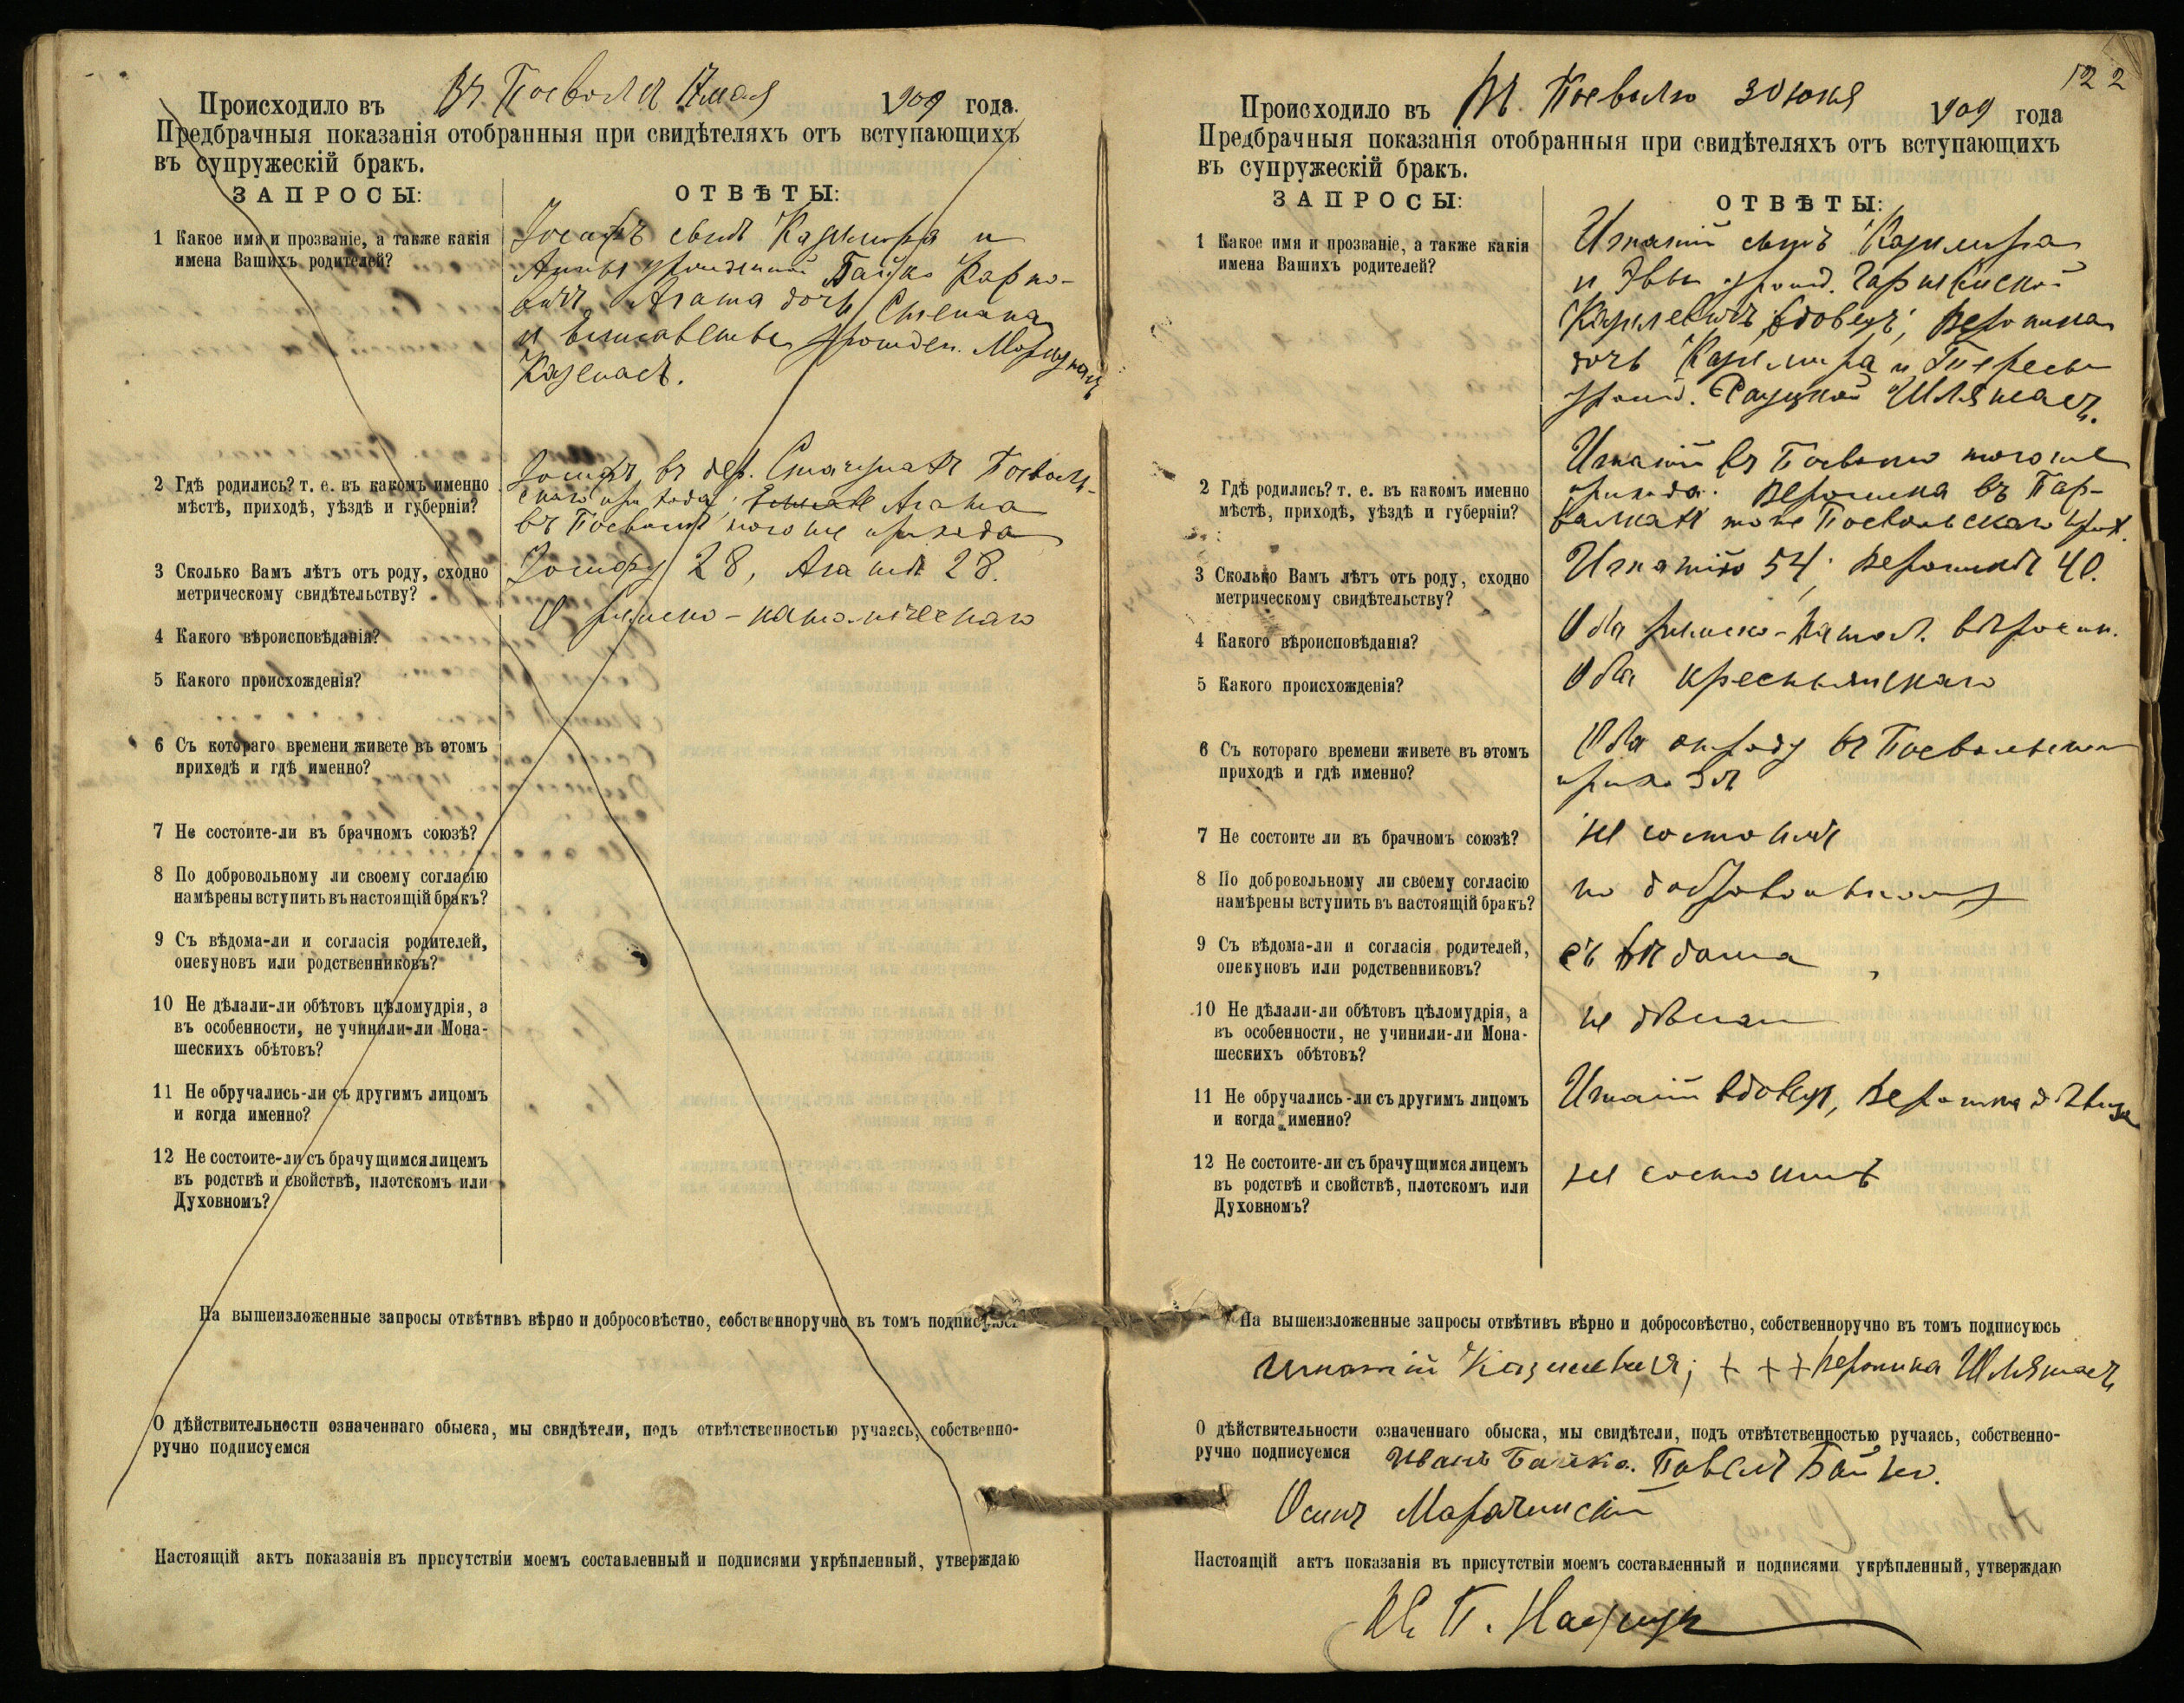 Происходило въ Въ Поеволѣ 17 мая 1909 года.
Предбрачныя показанія отобранныя при свидѣтеляхъ отъ вступающихъ
въ супружескій бракъ.
ЗАПРОСЫ: ОТВѢТЫ:
1 Какое имя и прозваніе, а также какія
имена Вашихъ родителей?
Іосифъ сынъ Казимира и
Анны урожденной Байко
Агата дочь Степана
и Елисаветы урожден.
2 Гдѣ родились? т. е. въ какомъ именно
мѣстѣ, приходѣ, уѣздѣ и губерніи?
Іосифъ въ дер. Поеволь-
скаго прихода, Агата
въ Поеволѣ того же прихода
3 Сколько Вамъ лѣтъ отъ роду, сходно
метрическому свидѣтельству?
Іосифу 28, Агатѣ 28.
4 Какого вѣроисповѣданія?
римско-католическаго
5 Какого происхожденія?
6 Съ котораго времени живете въ этомъ
приходѣ и гдѣ именно?
7 Не состоите-ли въ брачномъ союзѣ?
8 По добровольному ли своему согласію
намѣрены вступить въ настоящій бракъ?
9 Съ вѣдома-ли и согласія родителей,
опекуновъ или родственниковъ?
10 Не дѣлали-ли обѣтовъ цѣломудрія, а
въ особенности, не учинили-ли Мона-
шескихъ обѣтовъ?
11 Не обручались-ли съ другимъ лицомъ
и когда именно?
12 Не состоите-ли съ брачущимся лицемъ
въ родствѣ и свойствѣ, плотскомъ или
Духовномъ?
На вышеизложенные запросы отвѣтивъ вѣрно и добросовѣстно, собственноручно въ томъ подписуюсь
О дѣйствительности означеннаго обыска, мы свидѣтели, подъ отвѣтственностью ручаясь, собственно-
ручно подписуемся
Настоящій актъ показанія въ присутствіи моемъ составленный и подписями укрѣпленный, утверждаю
122
Происходило въ Поеволю 30 юня 1909 года
Предбрачныя показанія отобранныя при свидѣтеляхъ отъ вступающихъ
въ супружескій бракъ.
ЗАПРОСЫ: ОТВѢТЫ:
1 Какое имя и прозваніе, а также какія
имена Вашихъ родителей?
Игнатій сынъ Казимира
и Эвы урожд.
вдовецъ, Вероника
дочь Казимира и Тересы
урожд.
2 Гдѣ родились? т. е. въ какомъ именно
мѣстѣ, приходѣ, уѣздѣ и губерніи?
Игнатій въ Поеволю того же
прихода. Вероника въ
тоже Поевольскаго прих.
3 Сколько Вамъ лѣтъ отъ роду, сходно
метрическому свидѣтельству?
Игнатію 54; Вероникѣ 40.
4 Какого вѣроисповѣданія?
Оба римско-катол. вѣроисп.
5 Какого происхожденія?
Оба крестьянскаго
6 Съ котораго времени живете въ этомъ
приходѣ и гдѣ именно?
Оба отроду въ Поевольском
приходѣ
7 Не состоите ли въ брачномъ союзѣ?
не состоимъ
8 По добровольному ли своему согласію
намѣрены вступить въ настоящій бракъ?
по добровольному
9 Съ вѣдома-ли и согласія родителей,
опекуновъ или родственниковъ?
съ вѣдома
10 Не дѣлали-ли обѣтовъ цѣломудрія, а
въ особенности, не учинили-ли Мона-
шескихъ обѣтовъ?
не дѣлали
11 Не обручались-ли съ другимъ лицомъ
и когда именно?
Игнатій вдовец, Вероника дѣвица
12 Не состоите-ли съ брачущимся лицемъ
въ родствѣ и свойствѣ, плотскомъ или
Духовномъ?
не состоимъ
На вышеизложенные запросы отвѣтивъ вѣрно и добросовѣстно, собственноручно въ томъ подписуюсь
Игнатій + + + Вероника
О дѣйствительности означеннаго обыска, мы свидѣтели, подъ отвѣтственностью ручаясь, собственно-
ручно подписуемся Иванъ Байко. Павелъ Байко.
Осипъ Марачинскій
Настоящій актъ показанія въ присутствіи моемъ составленный и подписями укрѣпленный, утверждаю